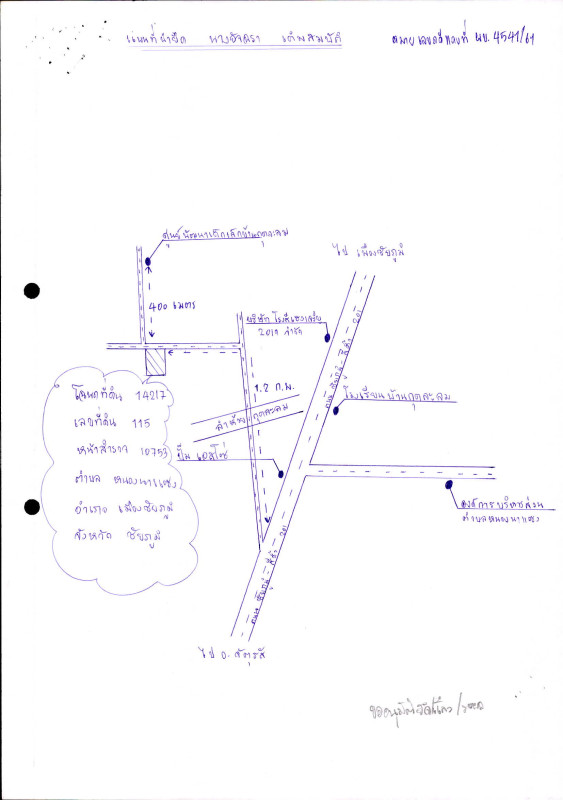 แผนที่นำยึด นางอัจฉรา เติมสมบัติ
หมายเลขคดีแดงที่ ผบ. 4541/61
ศูนย์พัฒนาเด็กเล็กบ้านกุดละลม
ไป เมืองชัยภูมิ
400 เมตร
บริษัท โรงสีแสงเจริญ
2019 จำกัด
ถนน ชัยภูมิ - สีคิ้ว 201
1.2 ก.ม.
โรงเรียนบ้านกุดละลม
ลำห้วย กุดละลม
โฉนดที่ดิน 14217
เลขที่ดิน 115
หน้าสำรวจ 10753
ตำบล หนองนาแซง
อำเภอ เมืองชัยภูมิ
จังหวัด ชัยภูมิ
ปั๊ม เอสโซ่
องค์การบริหารส่วน
ตำบลหนองนาแซง
ถนน ชัยภูมิ - สีคิ้ว 201
ไป อ. จัตุรัส